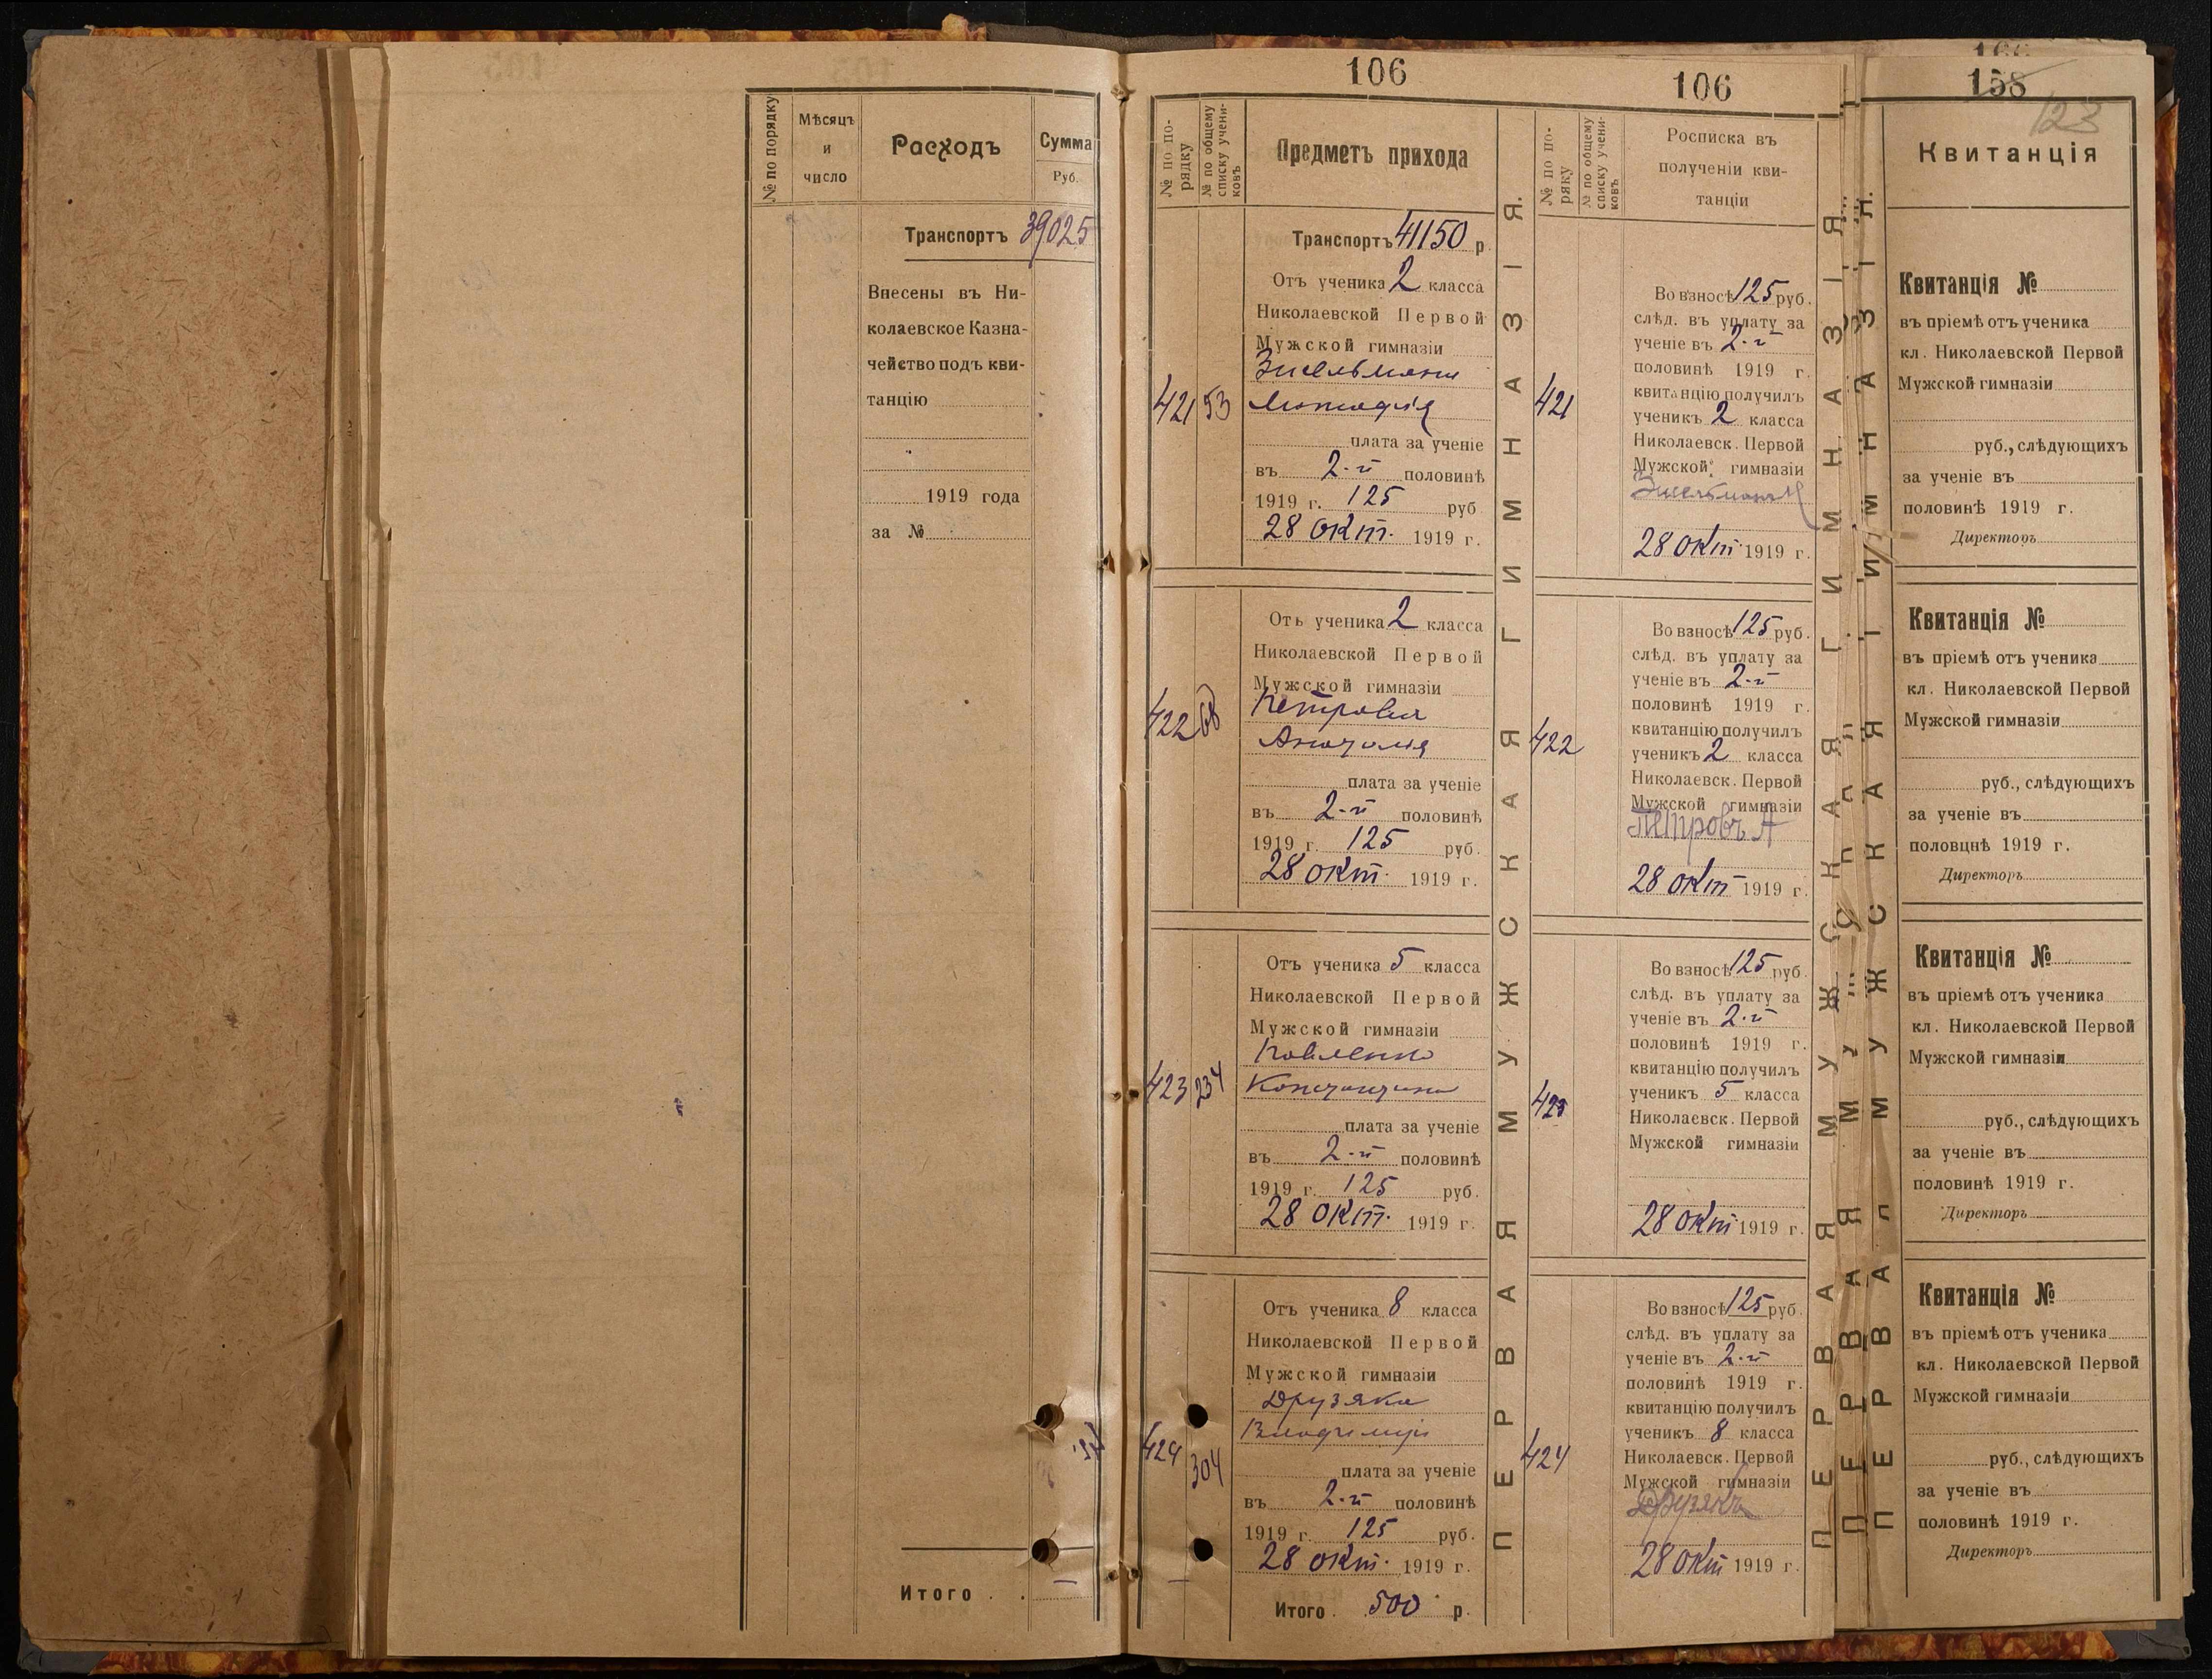 № по порядку
Мѣсяцъ
и
число
Расходъ
Сумма
Руб.
Транспортъ 39025
Внесены въ Ни-
колаевское Казна-
чейство подъ кви-
танцію
1919 года
за №
Итого . .
106
№ по по-
рядку
№ по общему
списку учени-
ковъ
Предметъ прихода
Транспортъ 41150 р
Отъ ученика 2 класса
Николаевской Первой
Мужской гимназіи
Зисельмана
421 53
плата за ученіе
въ 2-й половинѣ
1919 г. 125 руб
28 окт. 1919 г.
Отъ ученика 2 класса
Николаевской Первой
Мужской гимназіи
Петрова
422 Анатолія
плата за ученіе
въ 2-й половинѣ
1919 г. 125 руб.
28 окт. 1919 г.
Отъ ученика 5 класса
Николаевской Первой
Мужской гимназіи
423 234 Константина
плата за ученіе
въ 2-й половинѣ
1919 г. 125 руб.
28 окт. 1919 г.
Отъ ученика 8 класса
Николаевской Первой
Мужской гимназіи
Друзяка
Владиміръ
424 304
плата за ученіе
въ 2-й половинѣ
1919 г. 125 руб.
28 окт. 1919 г.
Итого . 500 р.
ПЕРВАЯ МУЖСКАЯ ГИМНАЗІЯ.
106
№ по по-
ряку
№ по общему
списку учени-
ковъ
Росписка въ
полученіи кви-
танціи
Во взносѣ 125 руб.
слѣд. въ уплату за
ученіе въ 2-й
половинѣ 1919 г.
квитанцію получилъ
421 ученикъ 2 класса
Николаевск. Первой
Мужской гимназіи
28 окт 1919 г.
Во взносѣ 125 руб.
слѣд. въ уплату за
ученіе въ 2-й
половинѣ 1919 г.
квитанцію получилъ
422 ученикъ 2 класса
Николаевск. Первой
Мужской гимназіи
Петровъ А
28 окт 1919 г.
Во взносѣ 125 руб.
слѣд. въ уплату за
ученіе въ 2-й
половинѣ 1919 г.
квитанцію получилъ
423 ученикъ 5 класса
Николаевск. Первой
Мужской гимназіи
28 окт 1919 г.
Во взносѣ 125 руб.
слѣд. въ уплату за
ученіе въ 2-й
половинѣ 1919 г.
квитанцію получилъ
ученикъ 8 класса
424 Николаевск. Первой
Мужской гимназіи
Друзякъ
28 окт 1919 г.
ПЕРВАЯ МУЖСКАЯ ГИМНАЗІЯ
158
123
Квитанція
Квитанція №
въ пріемѣ отъ ученика
кл. Николаевской Первой
Мужской гимназіи
руб., слѣдующихъ
за ученіе въ
половинѣ 1919 г.
Директоръ
Квитанція №
въ пріемѣ отъ ученика
кл. Николаевской Первой
Мужской гимназіи
руб., слѣдующихъ
за ученіе въ
половцнѣ 1919 г.
Директоръ
Квитанція №
въ пріемѣ отъ ученика
кл. Николаевской Первой
Мужской гимназіи
руб., слѣдующихъ
за ученіе въ
половинѣ 1919 г.
Директоръ
Квитанція №
въ пріемѣ отъ ученика
кл. Николаевской Первой
Мужской гимназіи
руб., слѣдующихъ
за ученіе въ
половинѣ 1919 г.
Директоръ